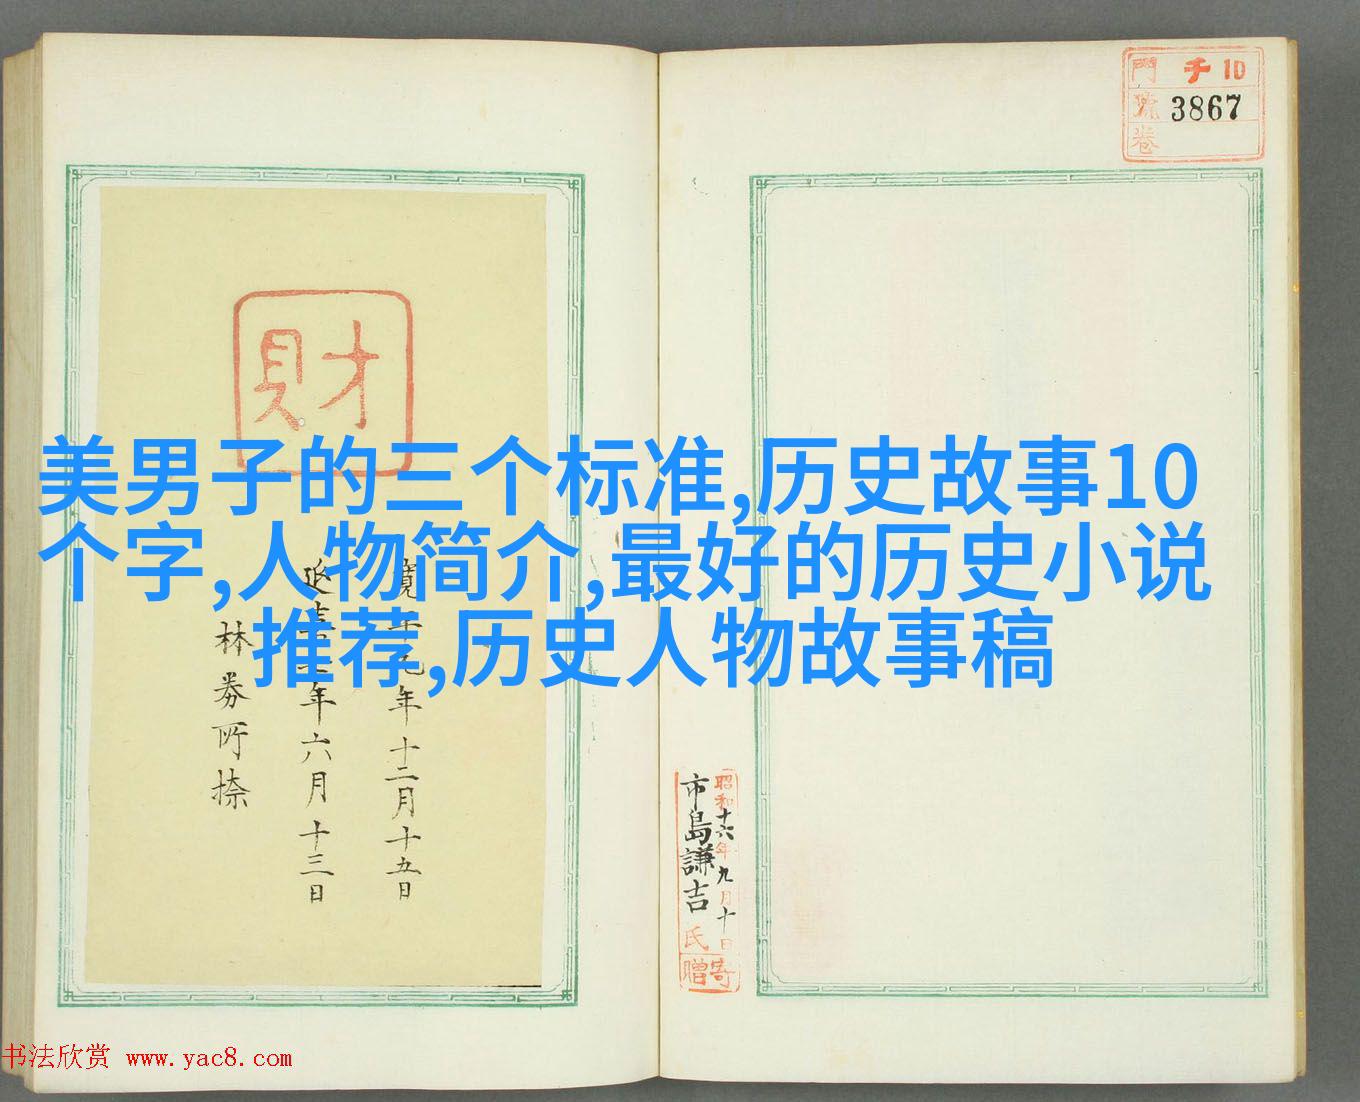 門 千 10
號 3867
卷
財
美男子的三个标准,历史故事10
个字,人物简介,最好的历史小说
推荐,历史人物故事稿
年十二月十五日
年六月十三日
林
昭和十六年九月十日
市島謙吉氏
寄贈
书法欣赏 www.yac8.com